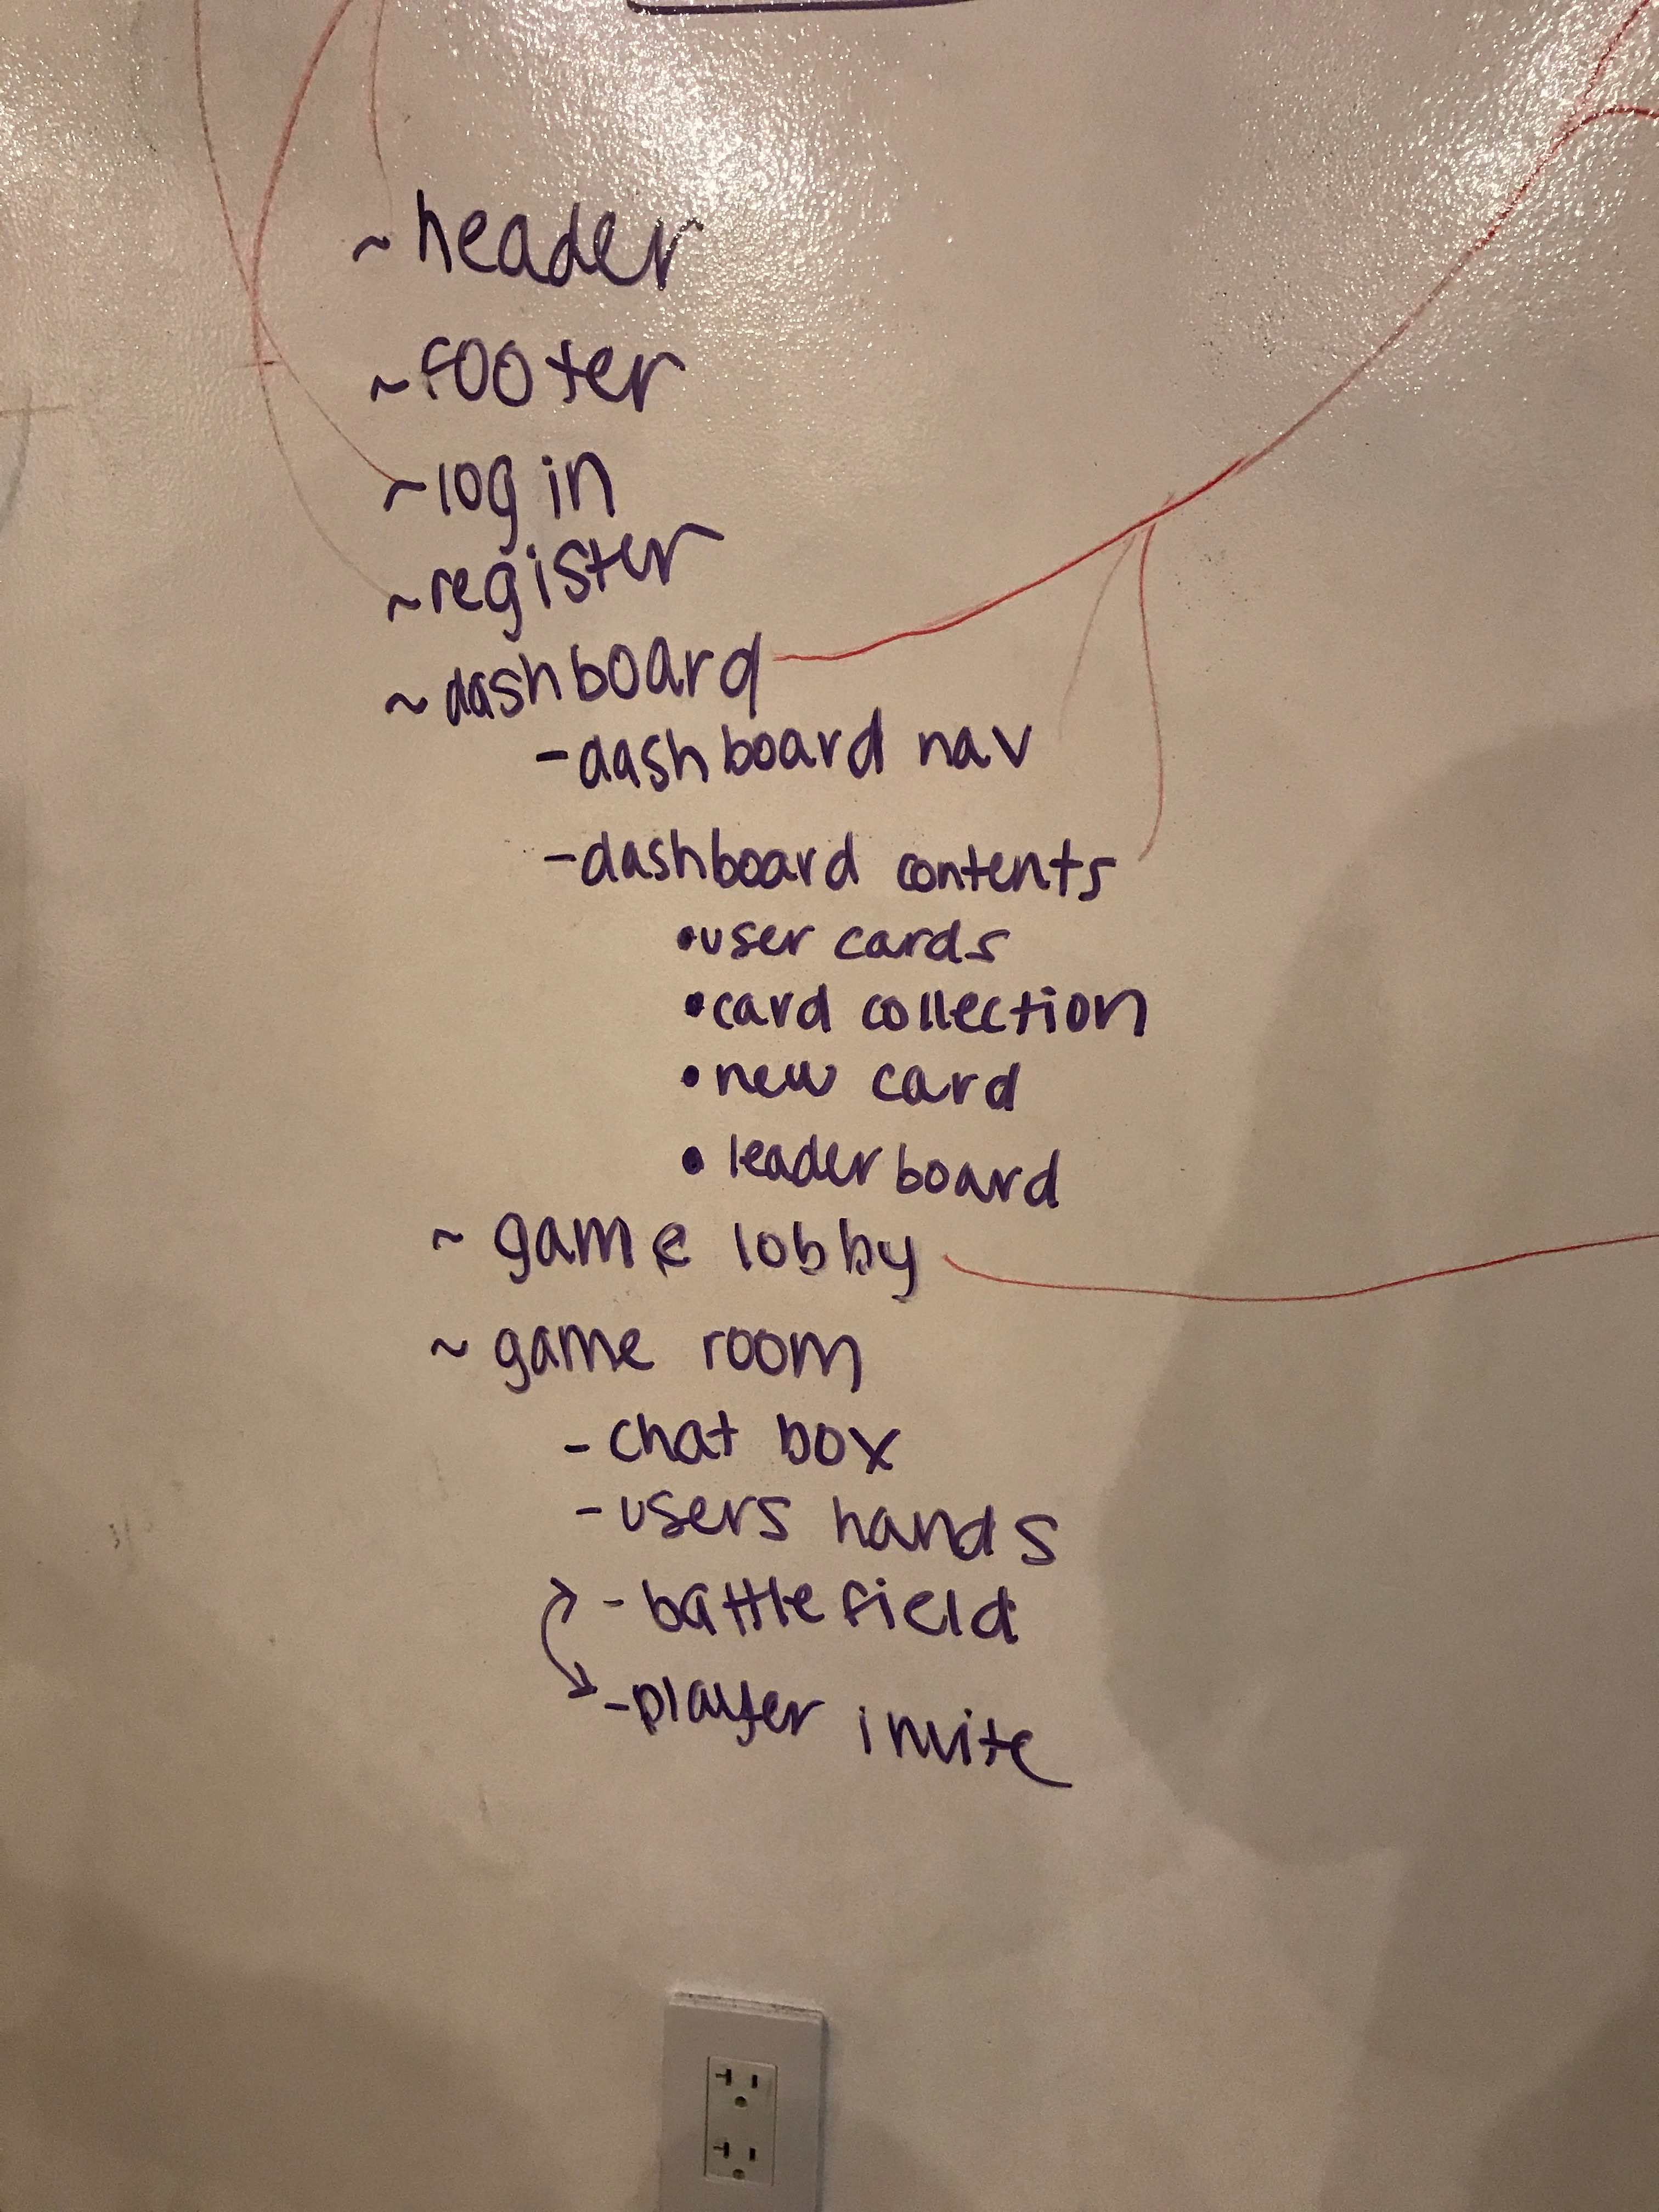 ~ header
~ footer
~ log in
~ register
~ dashboard
- dashboard nav
- dashboard contents
• user cards
• card collection
• new card
• leaderboard
~ game lobby
~ game room
- chat box
- users hands
- battlefield
- player invite